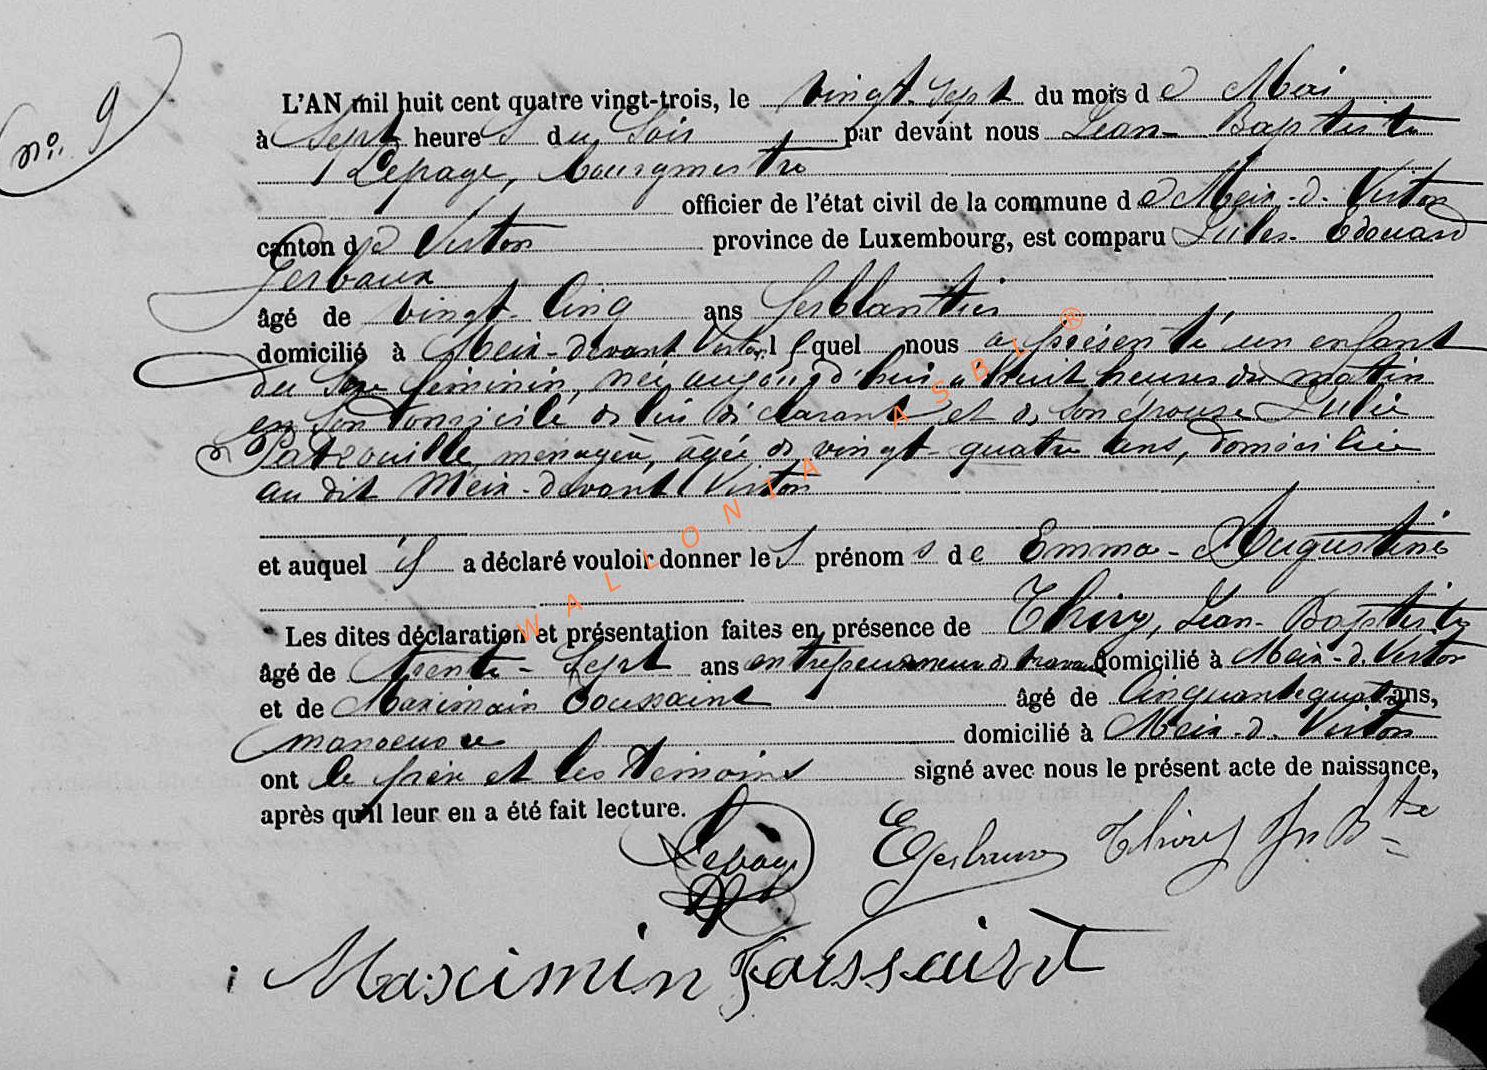 n°. 9
L'AN mil huit cent quatre vingt-trois, le vingt-sept du mois de Mai
à Sept heures du Soir par devant nous Jean-Baptiste
Lepage, bourgmestre
officier de l'état civil de la commune de Meix-d.-Virton
canton de Virton province de Luxembourg, est comparu Jules-Edouard
Gerbaux
âgé de vingt-cinq ans ferblantier
domicilié à Meix-devant Virton, lequel nous a présenté un enfant
du Sexe féminin, née aujourd'hui à huit heures du matin
en son domicile de lui déclarant et de son épouse Julie
ménagère, âgée de vingt-quatre ans, domiciliée
au dit Meix-devant Virton
et auquel il a déclaré vouloir donner les prénoms de Emma-Augustine
Les dites déclaration et présentation faites en présence de Thiry, Jean-Baptiste
âgé de trente-sept ans entrepreuneur de travaux domicilié à Meix-d.Virton
et de Maximain Toussaint âgé de Cinquante quatre ans,
manoeuvre domicilié à Meix-d.Virton
ont le père et les témoins signé avec nous le présent acte de naissance,
après qu'il leur en a été fait lecture.
Lepage EGerbaux Thiry Jn Bte
Maximin Toussaint
WALLONIA ASBL ®